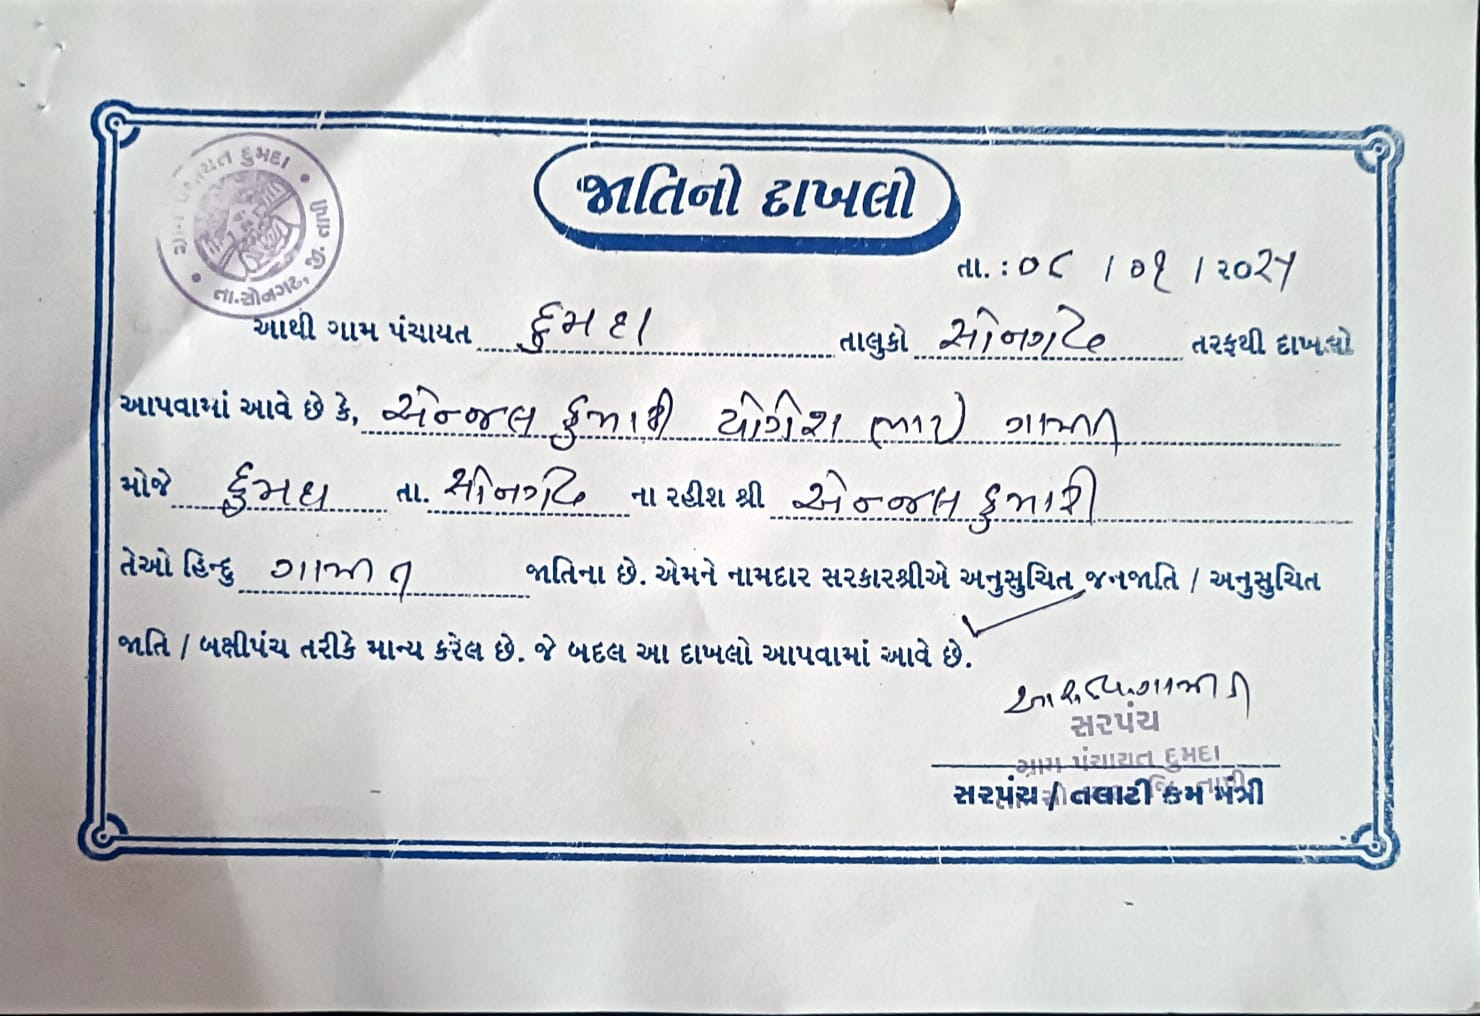 ગ્રામ પંચાયત દુમદા
તા.સોનગઢ, જી. તાપી
જાતિનો દાખલો
તા. : ૦૮ / ૦૧ / ૨૦૨૫
આથી ગામ પંચાયત દુમદા તાલુકો સોનગઢ તરફથી દાખલો
આપવામાં આવે છે કે, એન્જલ કુમારી યોગેશભાઈ ગામીત
મોજે દુમદા તા. સોનગઢ ના રહીશ શ્રી એન્જલ કુમારી
તેઓ હિન્દુ ગામીત જાતિના છે. એમને નામદાર સરકારશ્રીએ અનુસુચિત જનજાતિ / અનુસુચિત
જાતિ / બક્ષીપંચ તરીકે માન્ય કરેલ છે. જે બદલ આ દાખલો આપવામાં આવે છે.
સરપંચ
ગ્રામ પંચાયત દુમદા
સરપંચ / તલાટી કમ મંત્રી